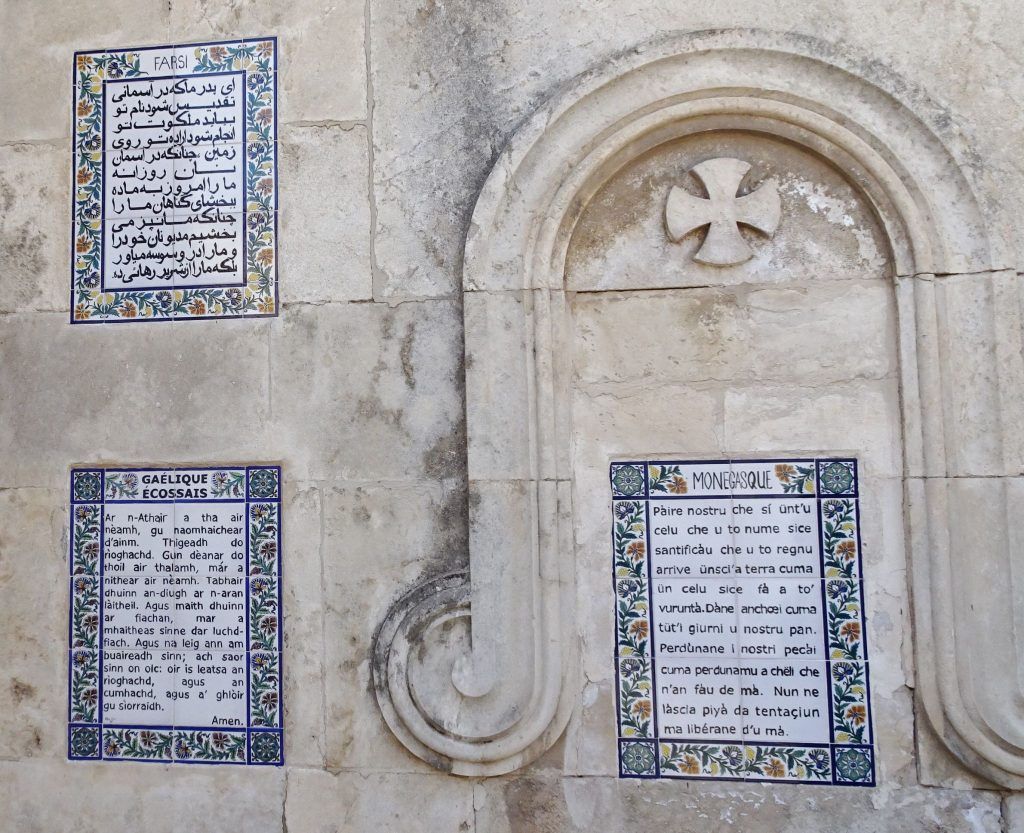 FARSI
ای پدر ماکه در اسمانی
تقدیس شود نام تو
بیاید ملکوت تو
انجام شود اراده تو روی
زمین، چنانکه در اسمان
نان روزانه
ما را امروز به ماده
ببخشای گناهان ما را
چنانکه ما نیز می
بخشیم مدیونان خود را
و ما را در وسوسه میاور
بلکه ما را از شریر رهائی ده.
GAÉLIQUE
ÉCOSSAIS
Ar n-Athair a tha air
nèamh, gu naomhaichear
d'ainm. Thigeadh do
rìoghachd. Gun dèanar do
thoil air thalamh, már a
nithear air nèamh. Tabhair
dhuinn an-diugh ar n-aran
làitheil. Agus maith dhuinn
ar fiachan, mar a
mhaitheas sinne dar luchd-
fiach. Agus na leig ann am
buaireadh sinn; ach saor
sinn on olc: oir is leatsa an
rìoghachd, agus an
cumhachd, agus a' ghlòir
gu sìorraidh.
Amen.
MONEGASQUE
Pàire nostru che sí ünt'u
celu che u to nume sice
santificàu che u to regnu
arrive ünsci'a terra cuma
ün celu sice fà a to'
vuruntà. Dàne anchœi cuma
tüt'i giurni u nostru pan.
Perdùnane i nostri pecài
cuma perdunamu a chëli che
n'an fàu de mà. Nun ne
làscia piyà da tentaçiun
ma libérane d'u mà.